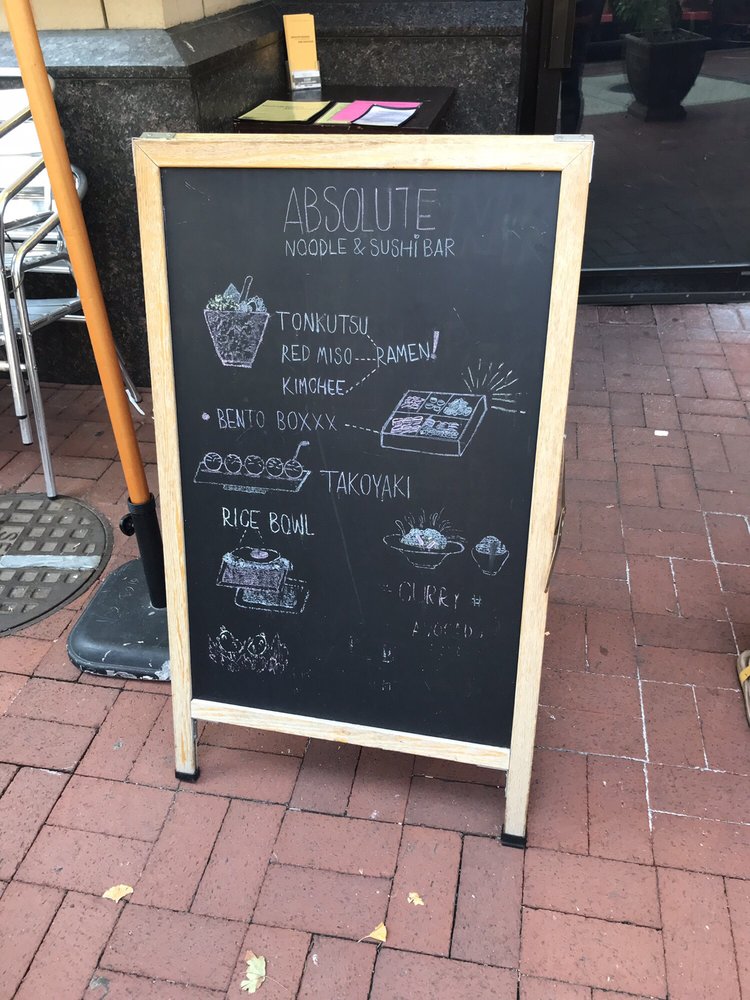 ABSOLUTE
NOODLE & SUSHI BAR
TONKUTSU
RED MISO---RAMEN!
KIMCHEE
• BENTO BOXXX
TAKOYAKI
RICE BOWL
CURRY #